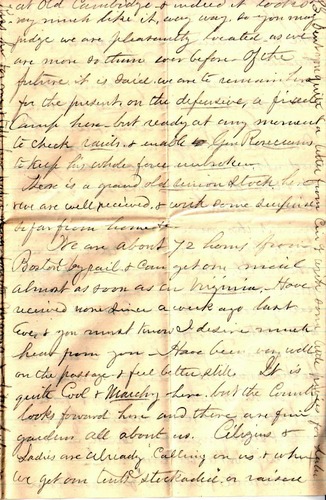 at Old Cambridge & indeed it looks
very much like it, any way so you may
judge we are pleasantly located, as we
are more so than ever before - Of the
future it is said we are to remain here
for the present on the defensive, a fixed
Camp here but ready at any moment
to check raids & enable Gen Rosecrans
to keep his whole force unbroken.
There is a grand old union stock here
& we are well received, & with some
far from home &
We are about 72 hours from
Boston by rail & can get our mail
almost as soon as in Virginia. Have
received none since a week ago last
Eve, & you must know I desire much
hear from you - Have been very well
on the passage & feel better still. It is
quite Cool & Marchy here but the Country
looks forward here and there are fine
gardens all about us. Citizens &
Ladies are already Calling on us & when
we get our tents stockaded, or raised